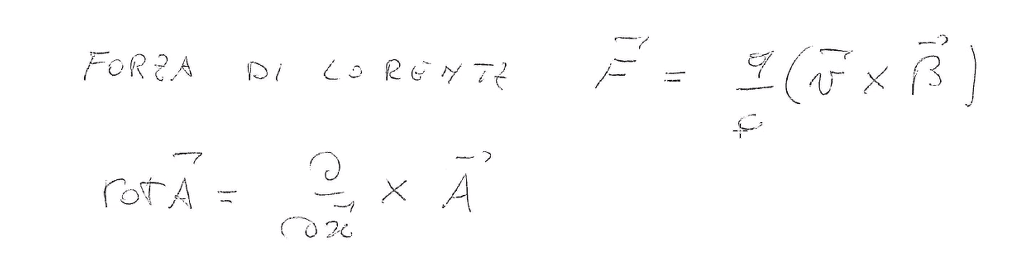 FORZA DI LORENTZ F⃗ = q/c (v⃗ × B⃗)
rot A⃗ = ∂/∂x⃗ × A⃗